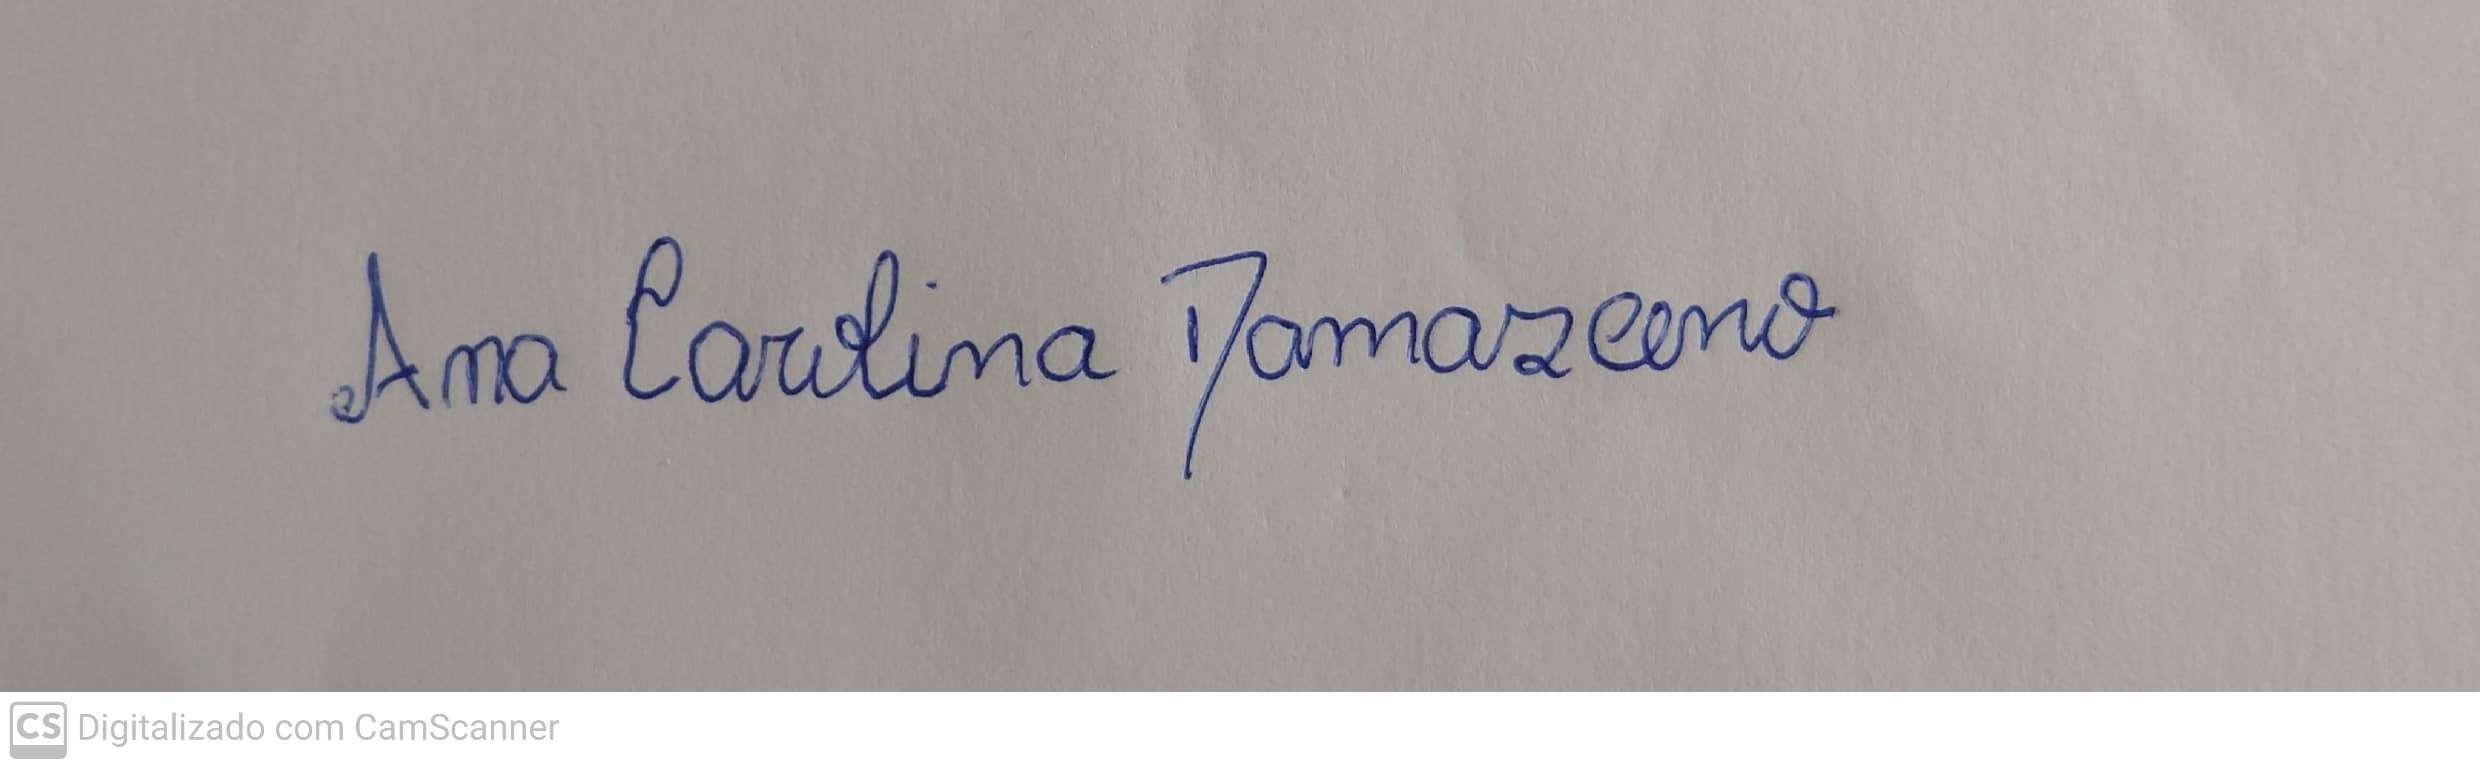 Ana Carolina Damazceno
CS Digitalizado com CamScanner